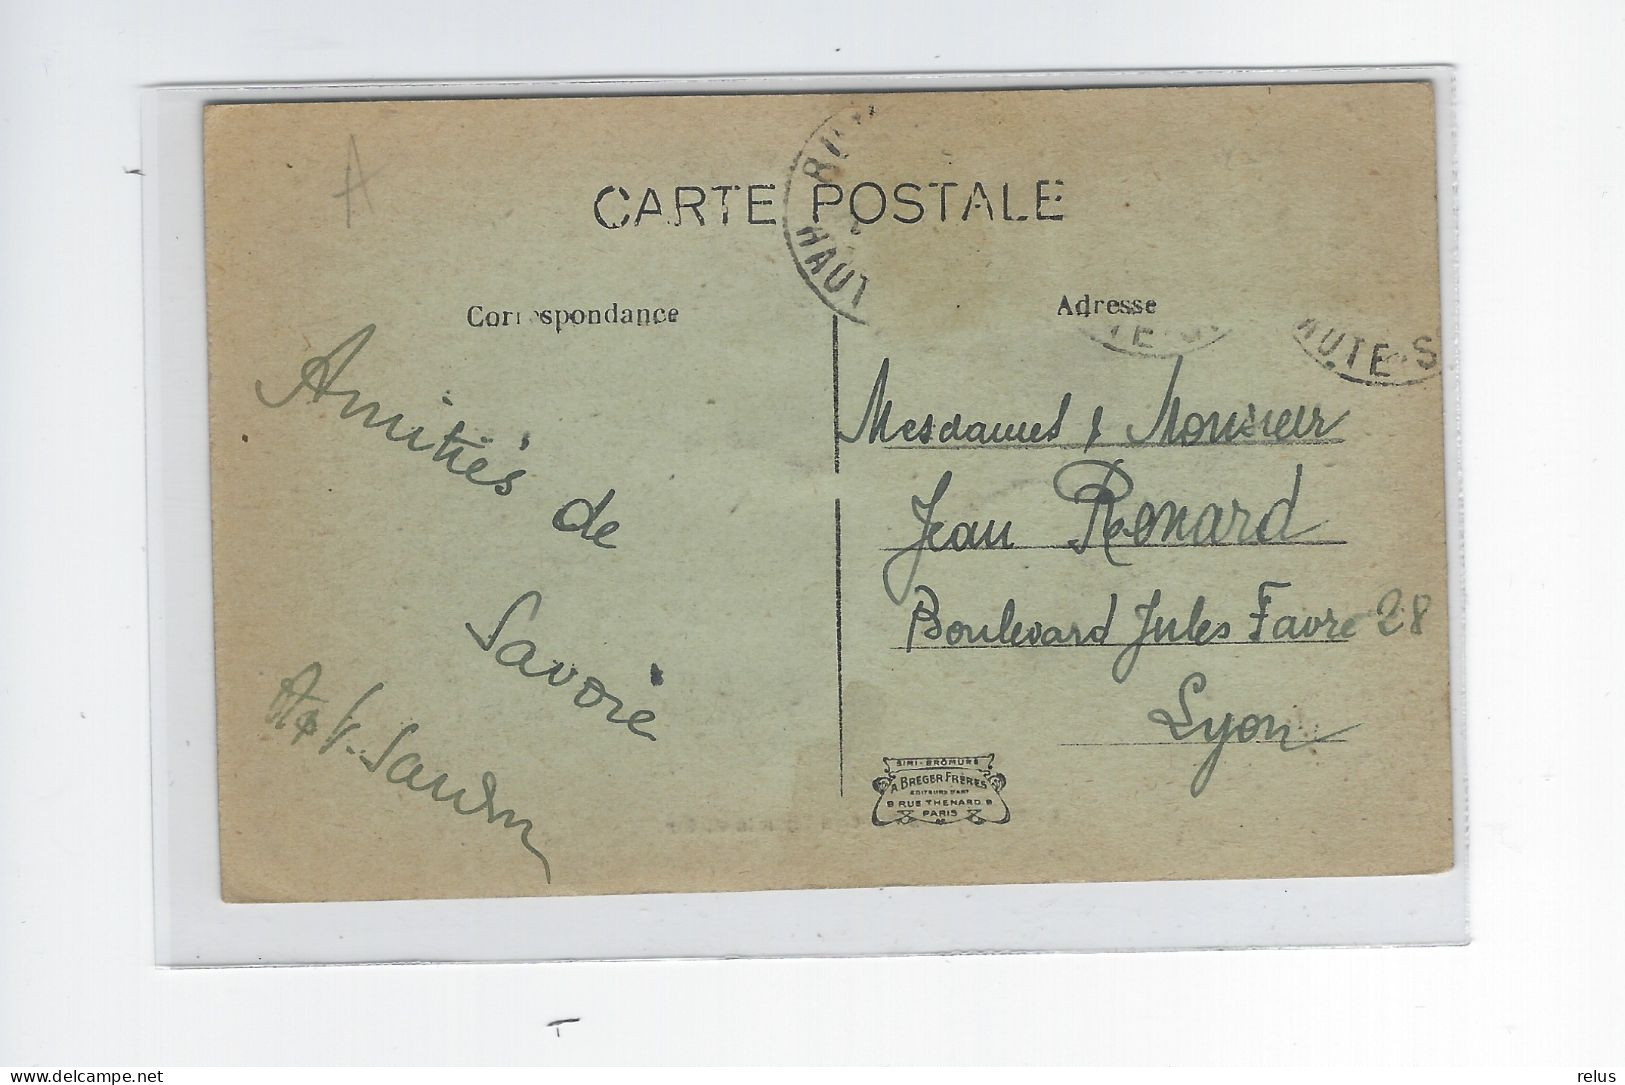 A
CARTE POSTALE
HAUT
Correspondance
Adresse
AUTE-S
Amitiés de
Savoie
Mesdames & Monsieur
Jean Renard
Boulevard Jules Favre 28
Lyon
SIMI-BROMURE
A BREGER FRÈRES
EDITEURS D'ART
9 RUE THENARD 9
PARIS
delcampe.net
relus